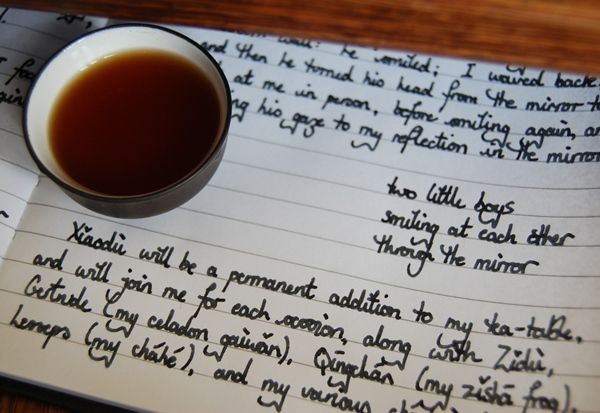 wall: he smiled; I waved back.
and then he turned his head from the mirror to
at me in person, before smiling again, an
ng his gaze to my reflection in the mirror
two little boys
smiling at each other
through the mirror
Xiǎodì will be a permanent addition to my tea-table,
and will join me for each session, along with Zǐdì,
Gertrude (my celadon gàiwǎn), Qīngchán (my zǐshā frog),
Lemeps (my cháhé), and my various